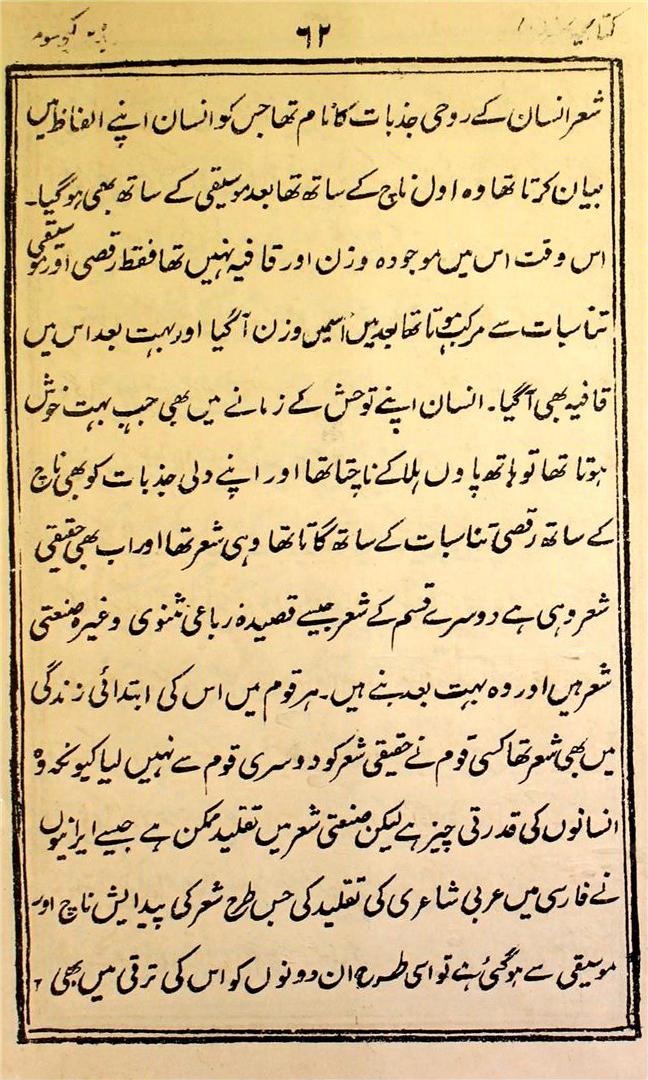 ۶۲
شعر انسان کے روحی جذبات کا نام تھا جس کو انسان اپنے الفاظ میں
بیان کرتا تھا وہ اول ناچ کے ساتھ تھا بعد موسیقی کے ساتھ بھی ہوگیا۔
اس وقت اس میں موجودہ وزن اور قافیہ نہیں تھا فقط رقصی اور موسیقی
تناسبات سے مرکب ہوتا تھا بعد میں اسمیں وزن آگیا اور بہت بعد اس میں
قافیہ بھی آگیا۔ انسان اپنے توحش کے زمانے میں بھی جب بہت خوش
ہوتا تھا تو ہاتھ پاوں ہلا کے ناچتا تھا اور اپنے دلی جذبات کو بھی ناچ
کے ساتھ رقصی تناسبات کے ساتھ گاتا تھا وہی شعر تھا اور اب بھی حقیقی
شعر وہی ہے دوسرے قسم کے شعر جیسے قصیدہ رباعی مثنوی وغیرہ صنعتی
شعر ہیں اور وہ بہت بعد بنے ہیں۔ ہر قوم میں اس کی ابتدائی زندگی
میں بھی شعر تھا کسی قوم نے حقیقی شعر کو دوسری قوم سے نہیں لیا کیونکہ وہ
انسانوں کی قدرتی چیز ہے لیکن صنعتی شعر میں تقلید ممکن ہے جیسے ایرانیوں
نے فارسی میں عربی شاعری کی تقلید کی جس طرح شعر کی پیدایش ناچ اور
موسیقی سے ہوگئی ہے تو اسی طرح ان دونوں کو اس کی ترقی میں بھی